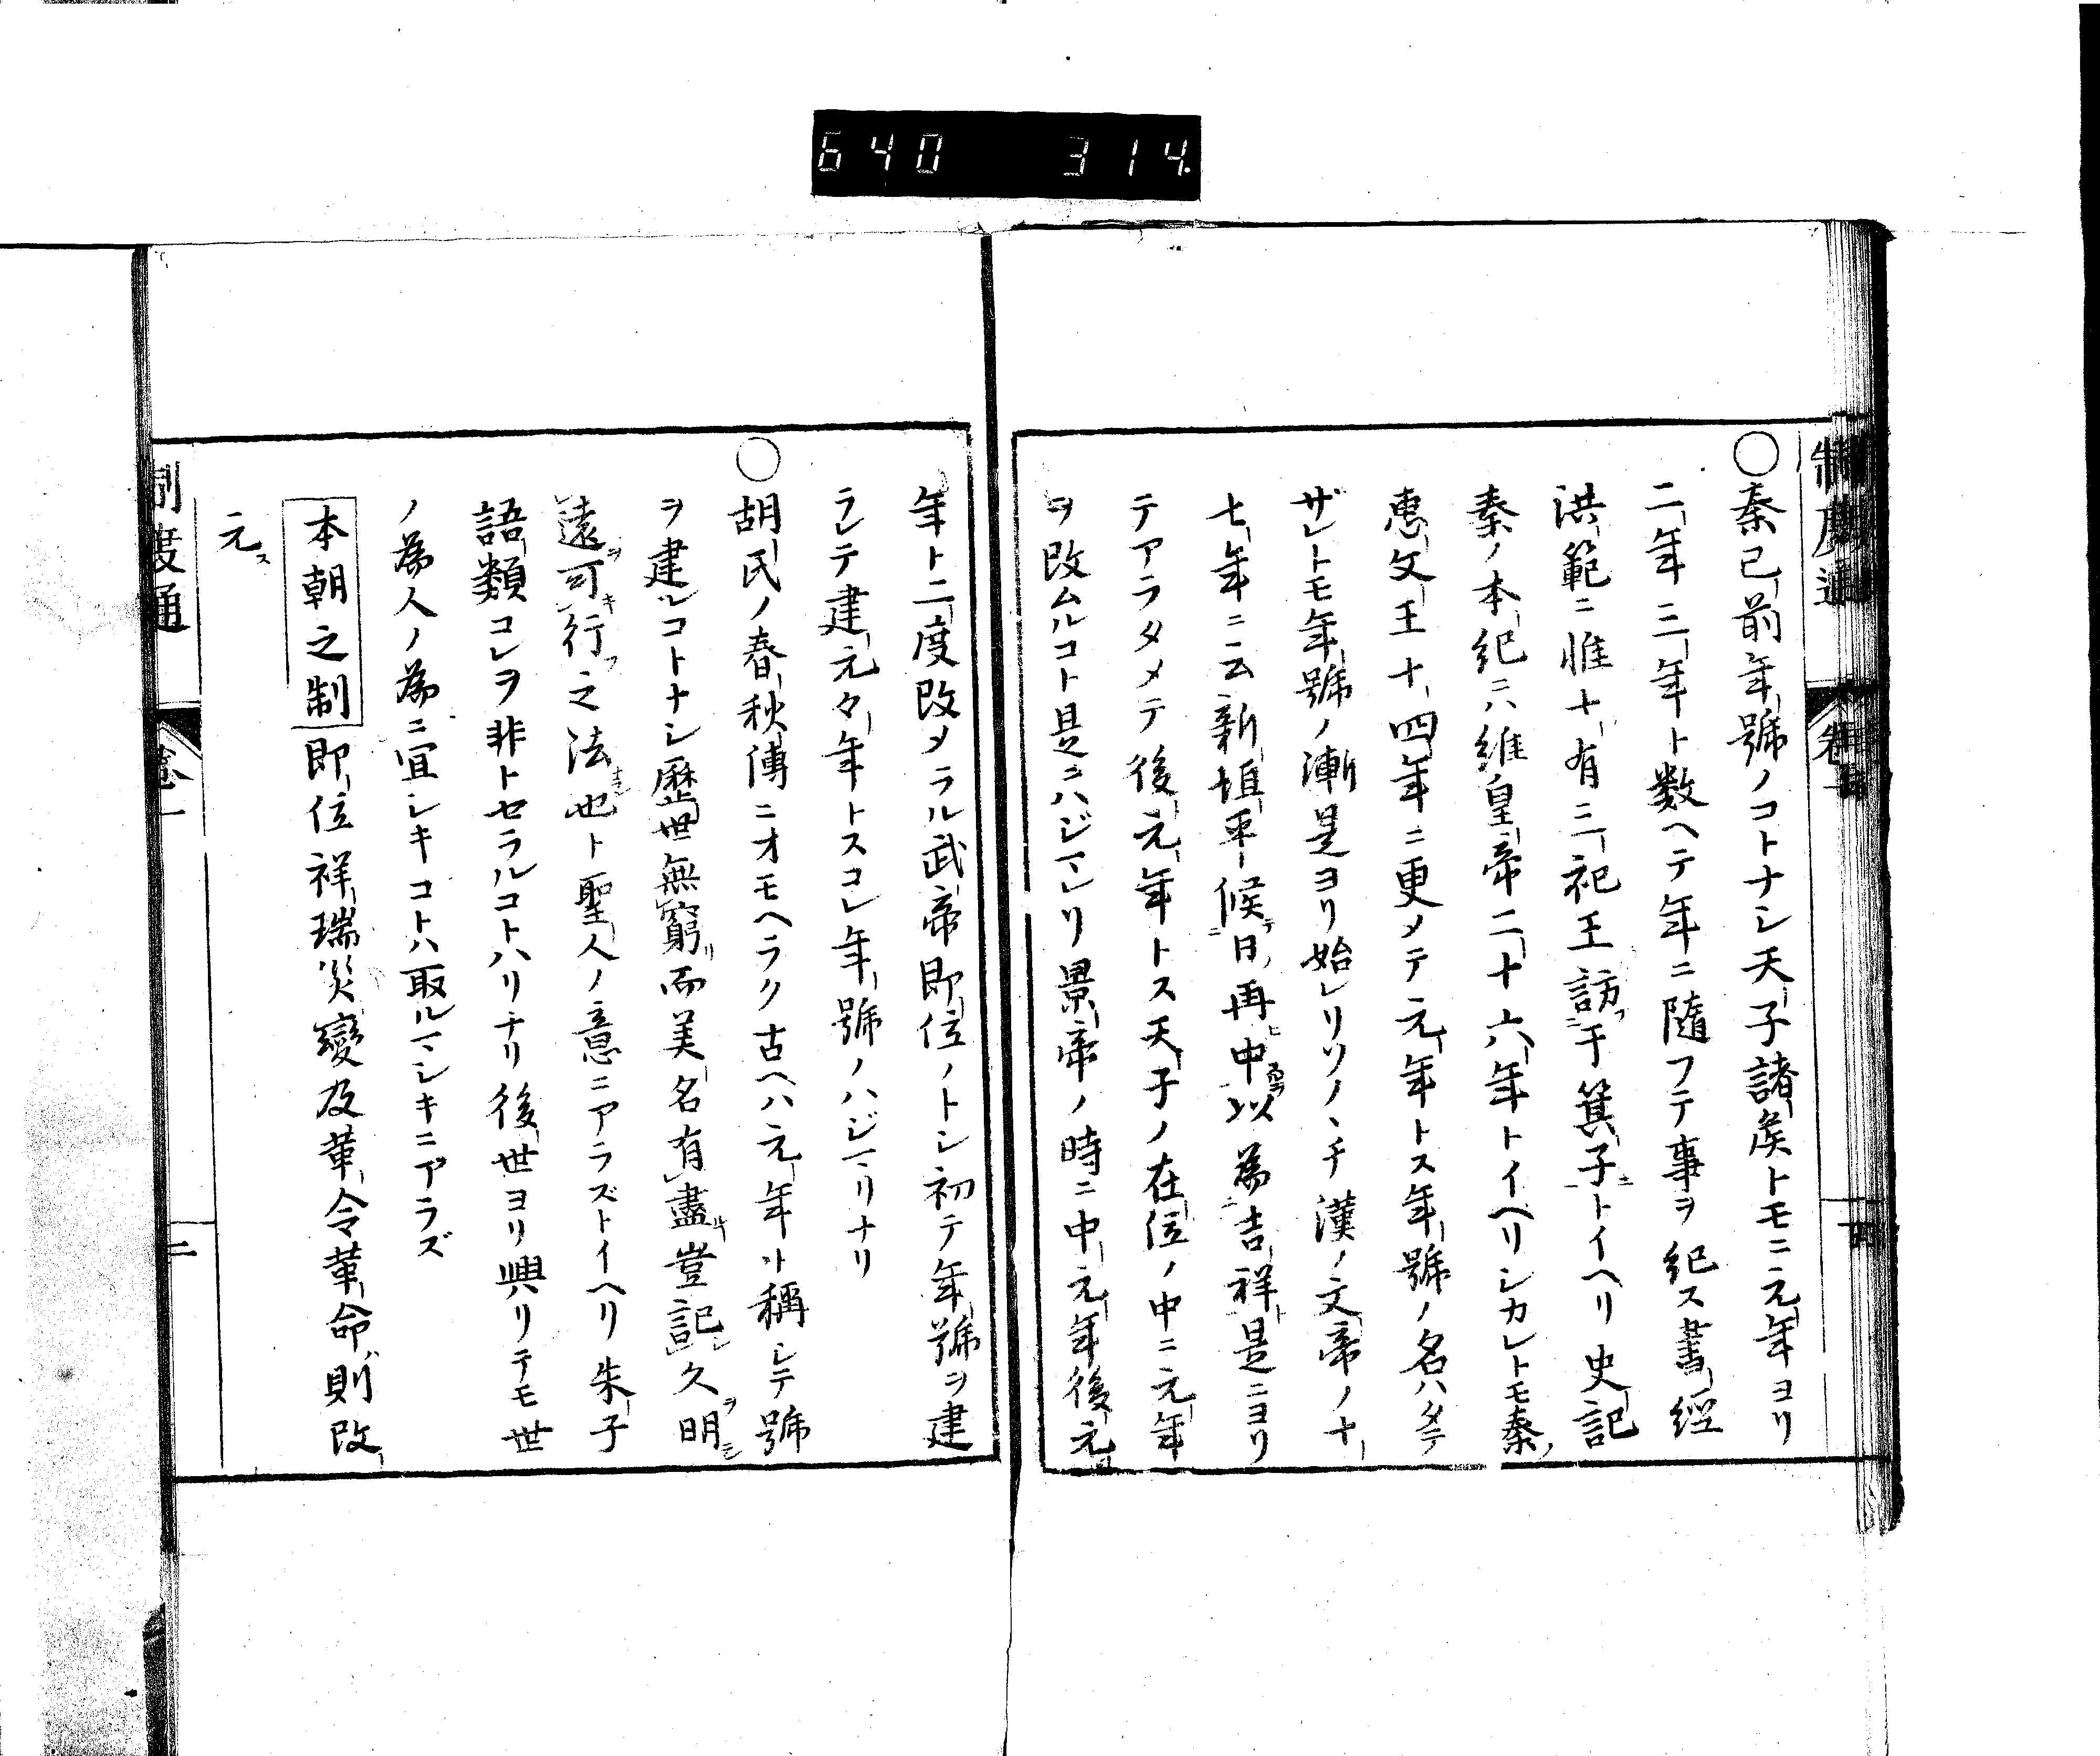 640 314
制度通 卷一
○秦已前年號ノコトナシ天子諸矦トモニ元年ヨリ
二年三年ト数ヘテ年ニ隨フテ事ヲ紀ス書經
洪範ニ惟十有三祀王訪于箕子トイヘリ史記
秦ノ本紀ニハ維皇帝二十六年トイヘリシカレトモ秦ノ
惠文王十四年ニ更メテ元年トス年號ノ名ハタテ
ザレトモ年號ノ漸是ヨリ始レリソノヽチ漢ノ文帝ノ十
七年ニ云新垣平候日再中以為吉祥是ニヨリ
テアラタメテ後元年トス天子ノ在位ノ中ニ元年
ヲ改ムルコト是ニハジマレリ景帝ノ時ニ中元年後元
年ト二度改メラル武帝即位ノトシ初テ年號ヲ建
ラレテ建元々年トスコレ年號ノハジマリナリ
○胡氏ノ春秋傳ニオモヘラク古ヘハ元年ト稱シテ號
ヲ建ルコトナシ歷世無窮而美名有盡豈記久明
遠可行之法也ト聖人ノ意ニアラズトイヘリ朱子
語類コレヲ非トセラルコトハリナリ後世ヨリ興リテモ世
ノ為人ノ為ニ宜シキコトハ取ルマシキニアラズ
本朝之制 即位祥瑞災變及革令革命則改
元ス
制度通 卷一 二